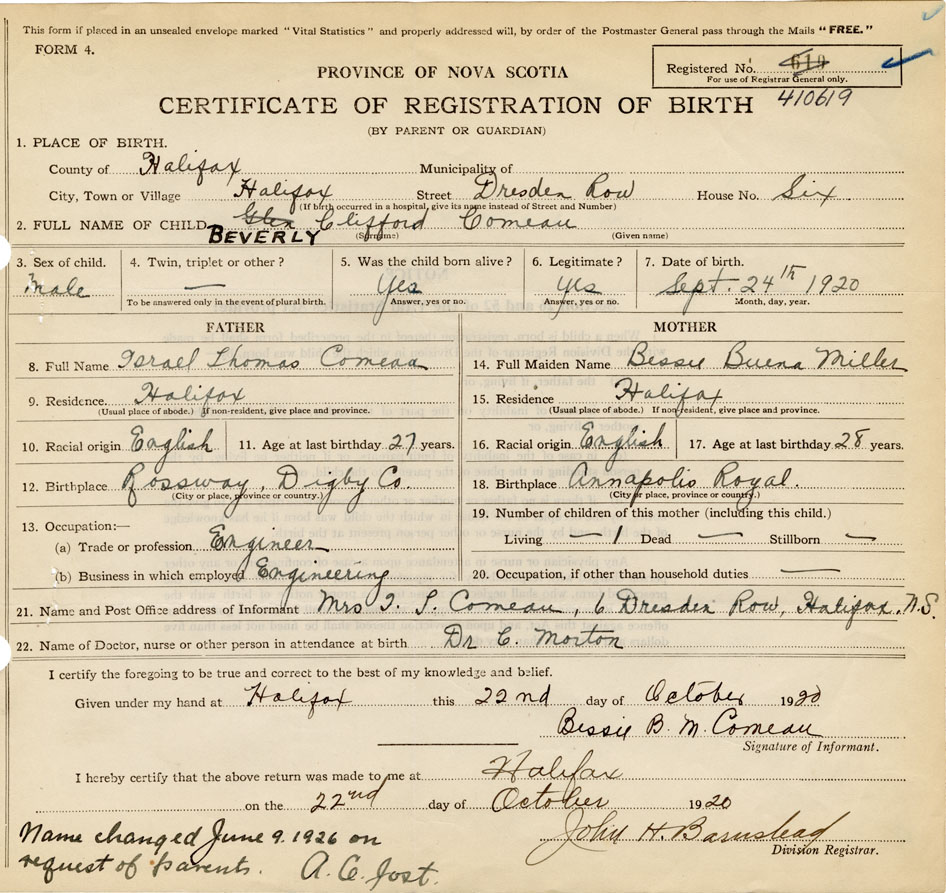 This form if placed in an unsealed envelope marked "Vital Statistics" and properly addressed will, by order of the Postmaster General pass through the Mails "FREE."
FORM 4.
Registered No. 619
For use of Registrar General only.
410619
PROVINCE OF NOVA SCOTIA
CERTIFICATE OF REGISTRATION OF BIRTH
(BY PARENT OR GUARDIAN)
1. PLACE OF BIRTH.
County of Halifax Municipality of
City, Town or Village Halifax Street Dresden Row House No. Six
(If birth occurred in a hospital, give its name instead of Street and Number)
2. FULL NAME OF CHILD Glen Clifford Comeau
BEVERLY (Surname) (Given name)
3. Sex of child. 4. Twin, triplet or other? 5. Was the child born alive? 6. Legitimate? 7. Date of birth.
Male — Yes Yes Sept. 24th 1920
To be answered only in the event of plural birth. Answer, yes or no. Answer, yes or no. Month, day, year.
FATHER MOTHER
8. Full Name Israel Thomas Comeau 14. Full Maiden Name Bessie Buena Miller
9. Residence. Halifax 15. Residence Halifax
(Usual place of abode.) If non-resident, give place and province. (Usual place of abode.) If non-resident, give place and province.
10. Racial origin English 11. Age at last birthday 27 years. 16. Racial origin English 17. Age at last birthday 28 years.
12. Birthplace Rossway, Digby Co. 18. Birthplace Annapolis Royal.
(City or place, province or country.) (City or place, province or country.)
13. Occupation:— 19. Number of children of this mother (including this child.)
(a) Trade or profession Engineer Living — 1 Dead — Stillborn —
(b) Business in which employed Engineering 20. Occupation, if other than household duties —
21. Name and Post Office address of Informant Mrs I. T. Comeau, 6 Dresden Row, Halifax. N.S.
22. Name of Doctor, nurse or other person in attendance at birth Dr C. Morton
I certify the foregoing to be true and correct to the best of my knowledge and belief.
Given under my hand at Halifax this 22nd day of October 1920
Bessie B. M. Comeau
Signature of Informant.
I hereby certify that the above return was made to me at Halifax
on the 22nd day of October 1920
John H. Barnstead
Division Registrar.
Name changed June 9. 1926 on
request of parents. A. C. Jost.